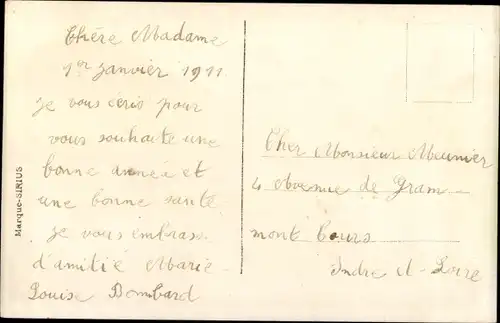 Chére Madame
1er janvier 1911
je vous écris pour
vous souhaite une
bonne année et
une bonne santé
je vous embrass
d'amitié Marie
Louise Bombard
Marque-SIRIUS
Cher Monsieur Meunier
4 Avenue de Gram
mont Tours
Indre et Loire